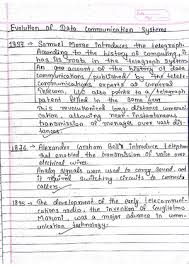 Evolution of Data Communication Systems
1837 → Samuel Morse Introduces the telegraph.
According to the history of computing, it
has its roots in the Telegraph System
An account of the history of data
communications published by the
communications experts at General
Telecom LLC also points to a telegraph
patent filed in the same year
This revolutionized long distance communi-
cation, allowing near-instantaneous
transmission of messages over vast dis-
tances.
1876 → Alexander Graham Bell's Introduce telephone
that enabled the transmission of voice over
electrical wires.
Analog signals were used to carry sound, and
it required switching circuits to connect
callers.
1895 → The development of the early telecommuni-
cations radio, the invention of Guglielmo
Marconi, was a major advance in comm-
unication technology.